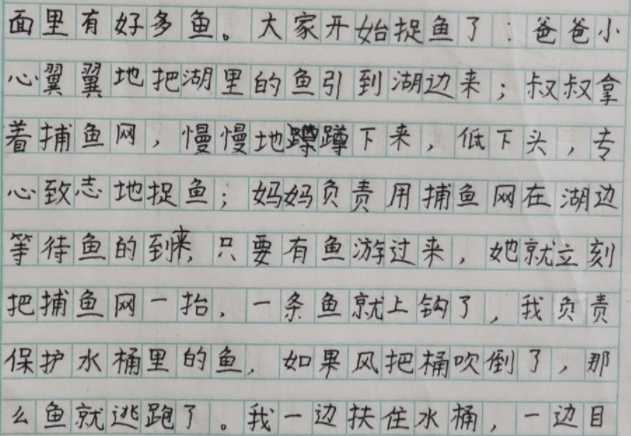 面里有好多鱼。大家开始捉鱼了：爸爸小
心翼翼地把湖里的鱼引到湖边来；叔叔拿
着捕鱼网，慢慢地蹲蹲下来，低下头，专
心致志地捉鱼；妈妈负责用捕鱼网在湖边
等待鱼的到来，只要有鱼游过来，她就立刻
把捕鱼网一抬，一条鱼就上钩了，我负责
保护水桶里的鱼，如果风把桶吹倒了，那
么鱼就逃跑了。我一边扶住水桶，一边目